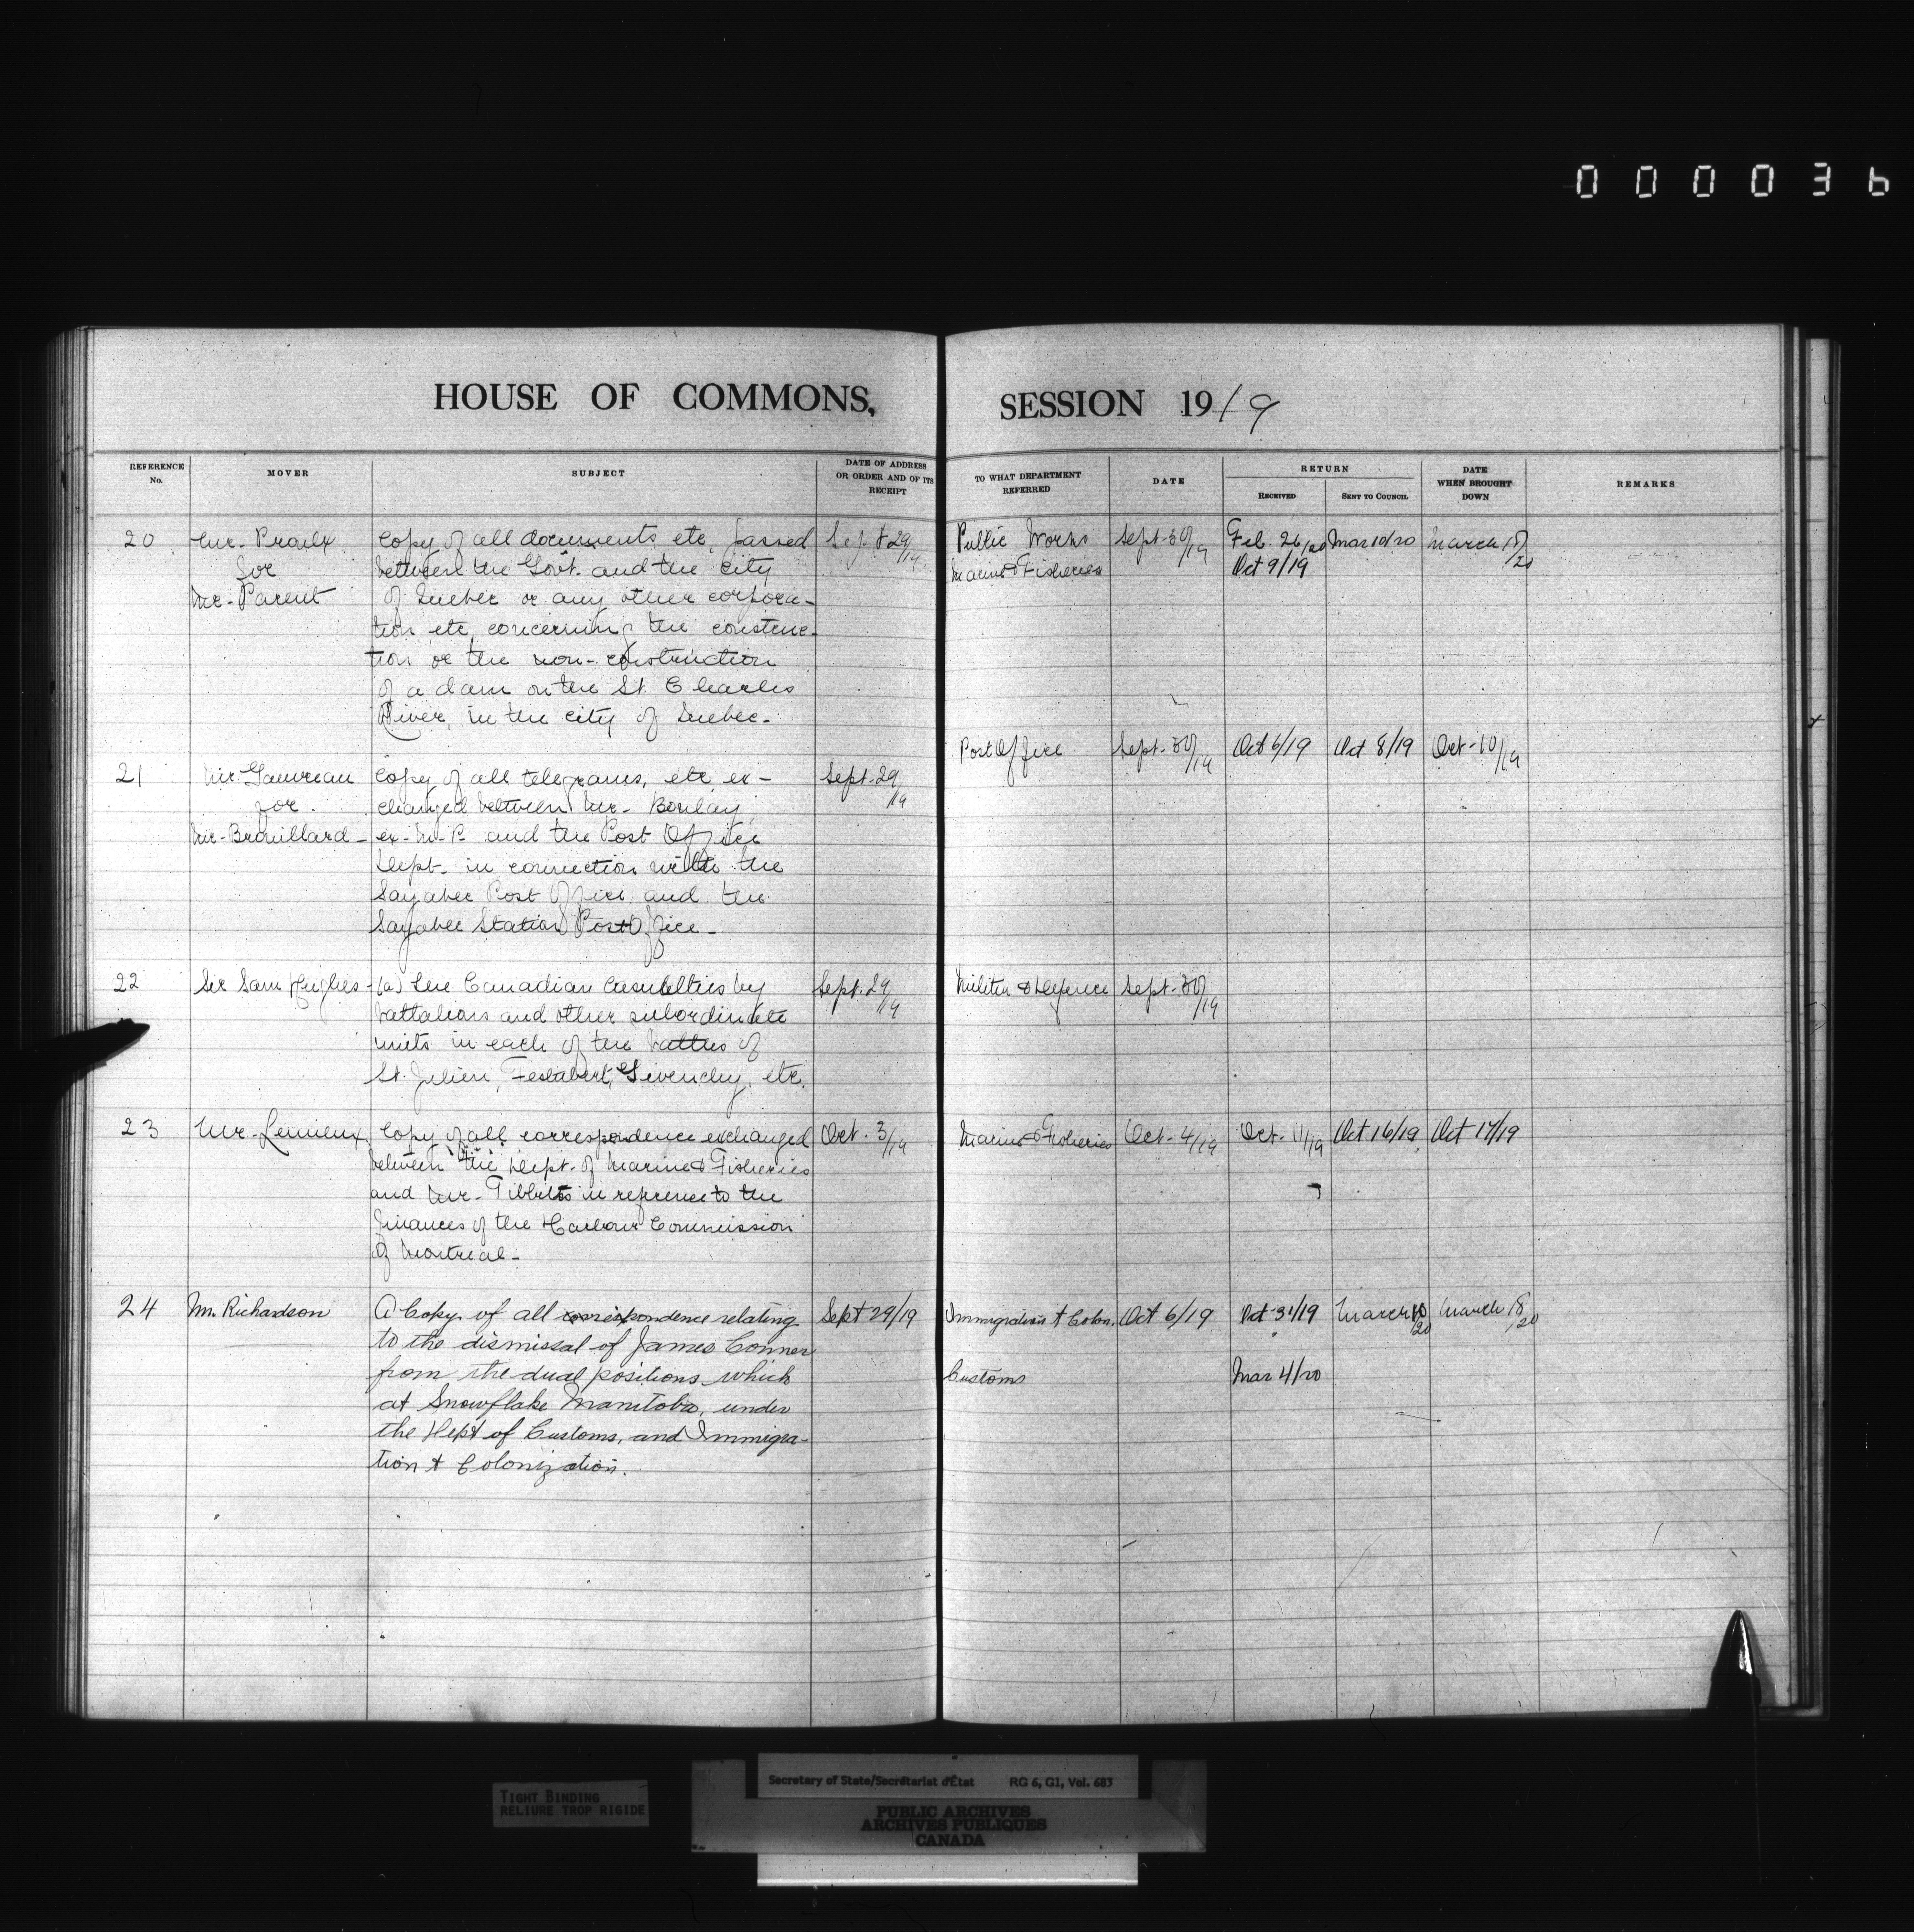 000036
HOUSE OF COMMONS,
SESSION 1919
REFERENCE No.
MOVER
SUBJECT
DATE OF ADDRESS OR ORDER AND OF ITS RECEIPT
TO WHAT DEPARTMENT REFERRED
DATE
RETURN
RECEIVED
SENT TO COUNCIL
DATE WHEN BROUGHT DOWN
REMARKS
20
Mr. Proulx
for
Mr. Parent
Copy of all documents etc, passed
between the Govt. and the city
of Quebec or any other corpora-
tion etc, concerning the construc-
tion or the non-construction
of a dam on the St. Charles
River, in the city of Quebec.
Sept 29/19
Public Works
Marine & Fisheries
Sept. 30/19
Feb. 26/20
Oct 9/19
Mar 10/20
March 18/20
21
Mr. Gauvreau
for
Mr. Brouillard
Copy of all telegrams, etc ex-
changed between Mr. Boulay
ex-M.P. and the Post Office
Dept. in connection with the
Sayabec Post Office and the
Sayabec Station Post Office.
Sept. 29/19
Post Office
Sept. 30/19
Oct 6/19
Oct 8/19
Oct. 10/19
22
Sir Sam Hughes
(a) The Canadian Casualties by
battalions and other subordinate
units in each of the battles of
St. Julien, Festubert, Givenchy, etc.
Sept. 29/19
Militia & Defence
Sept. 30/19
23
Mr. Lemieux
Copy of all correspondence exchanged
between the Dept. of Marine & Fisheries
and Mr. Tibbits in reference to the
finances of the Harbour Commission
of Montreal.
Oct. 3/19
Marine & Fisheries
Oct. 4/19
Oct. 11/19
Oct 16/19
Oct 17/19
24
Mr. Richardson
A Copy of all correspondence relating
to the dismissal of James Conner
from the dual positions which
at Snowflake Manitoba, under
the Dept of Customs, and Immigra-
tion & Colonization.
Sept 29/19
Immigration & Colon.
Customs
Oct 6/19
Oct 31/19
Mar 4/20
March 10/20
March 18/20
Secretary of State/Secrétariat d'État RG 6, G1, Vol. 683
TIGHT BINDING
RELIURE TROP RIGIDE
PUBLIC ARCHIVES
ARCHIVES PUBLIQUES
CANADA